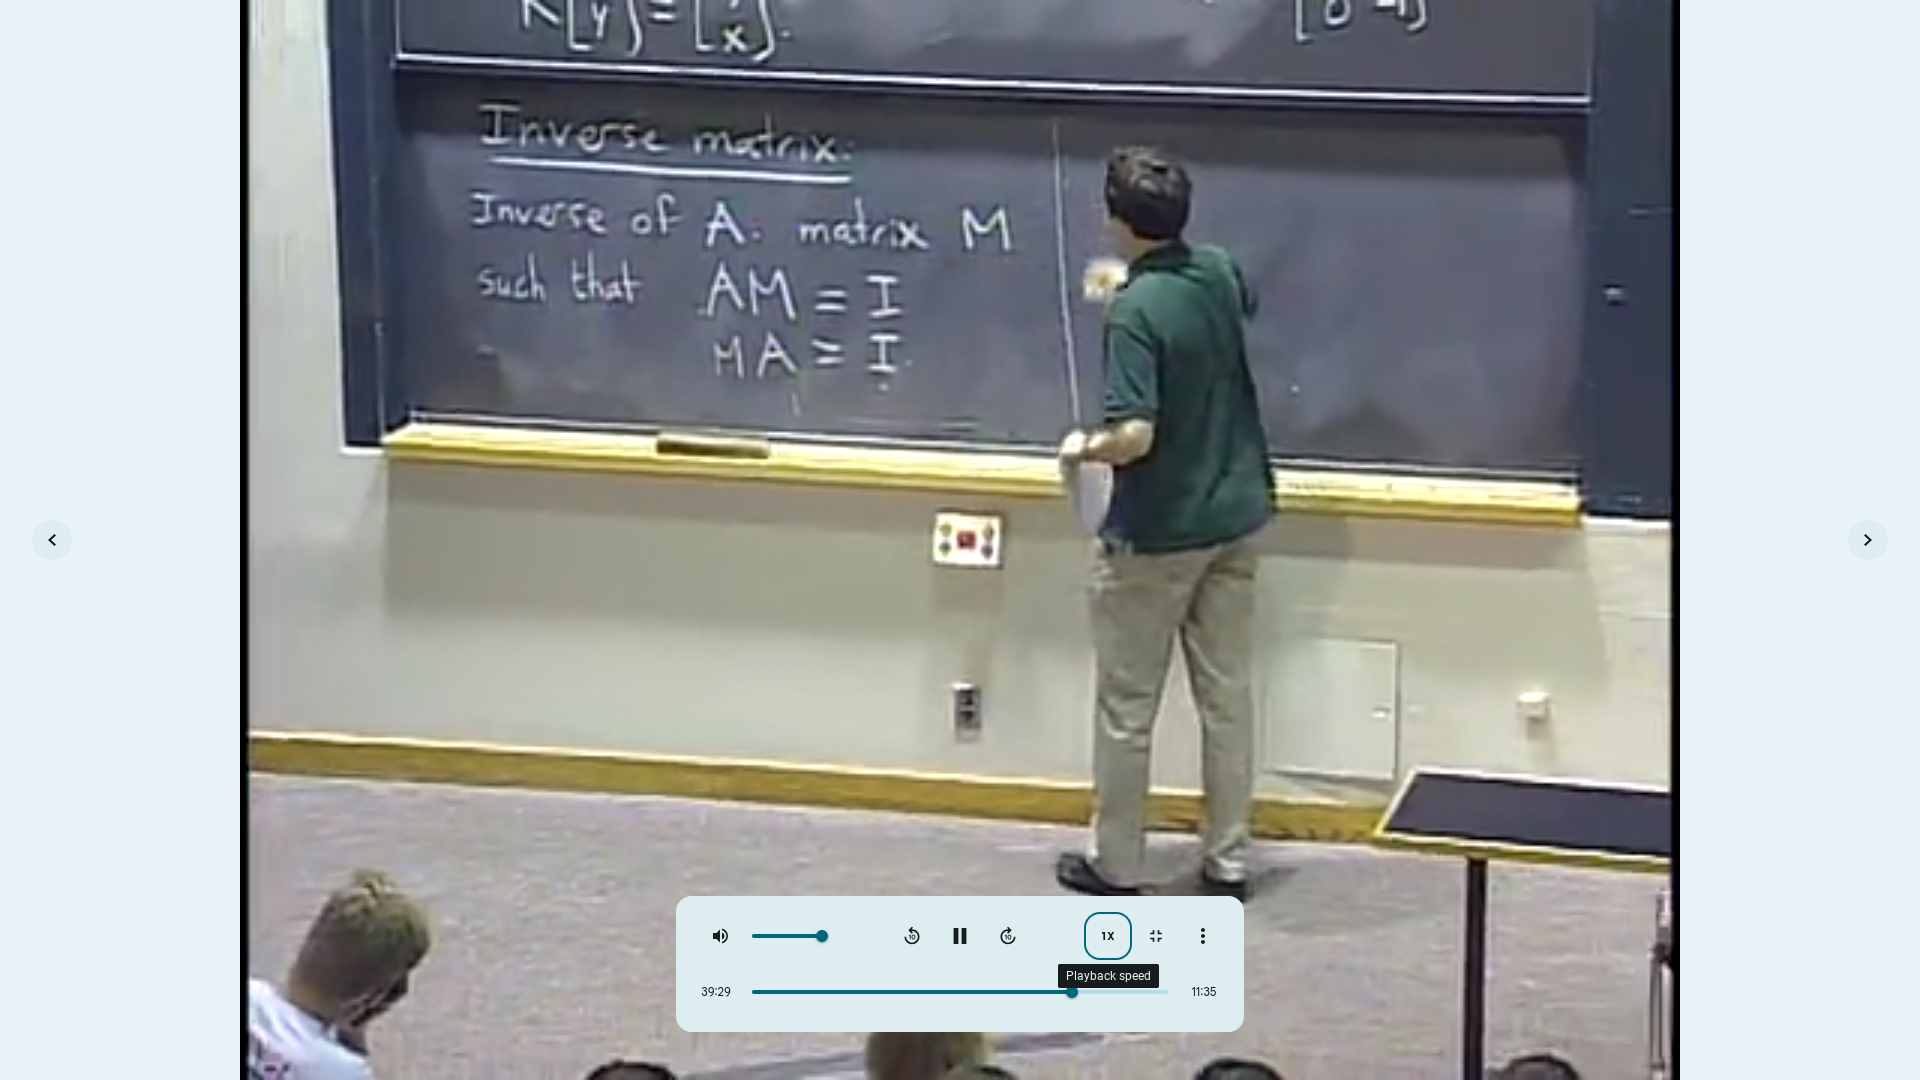 Inverse matrix:
Inverse of A. matrix M
such that AM = I
MA = I.
1X
Playback speed
39:29
11:35